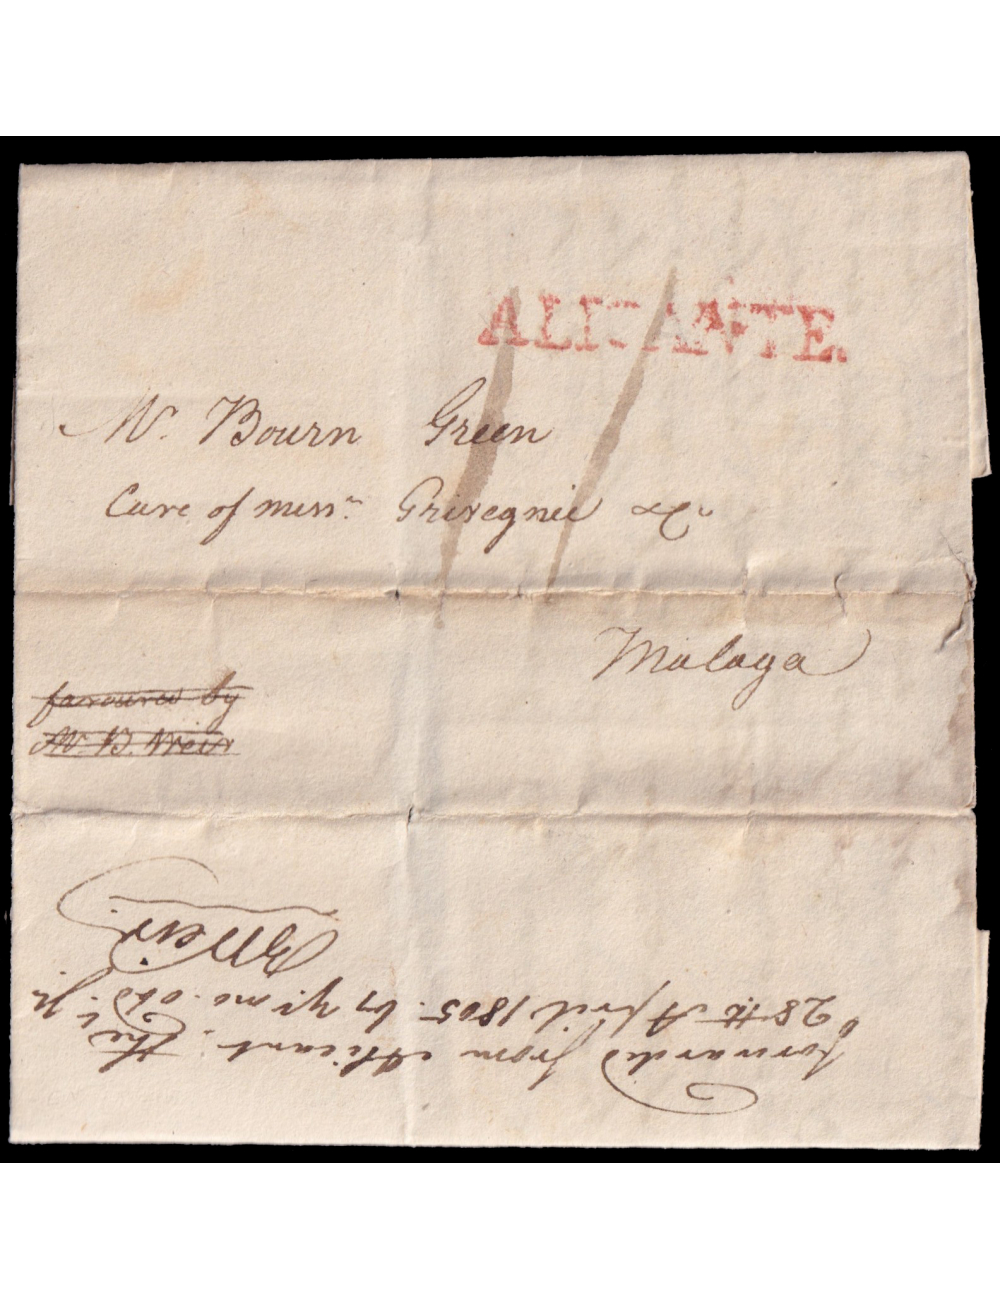 ALICANTE.
11
Mr. Bourn Green
Care of Messrs. Grivegnie & Co.
Malaga
favoured by
Mr. B. Weir
Forwarded from Alicant. the
28th April 1805. by yr. mo. obd. 
B Weir